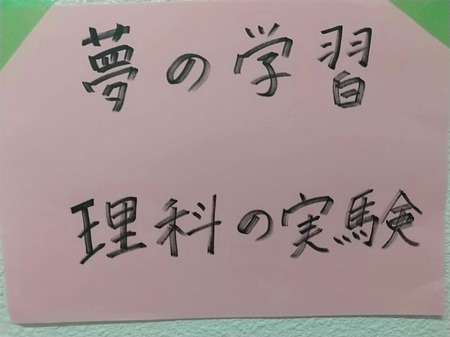 夢の学習
理科の実験